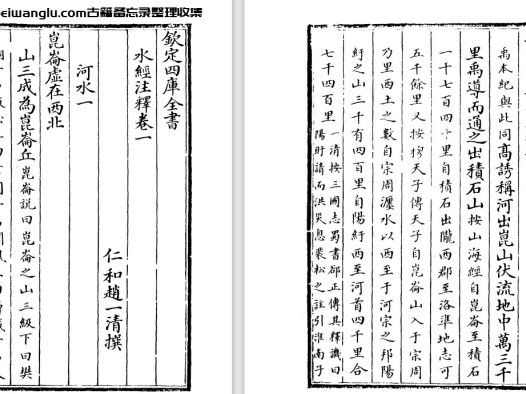 eiwanglu.com古籍备忘录整理收集
欽定四庫全書
水經注釋卷一
仁和趙一清撰
河水一
崑崙虛在西北
山三成為崑崙丘崑崙說曰崑崙之山三級下曰樊
禹本紀與此同高誘稱河出崑山伏流地中萬三千
里禹導而通之出積石山按山海經自崑崙至積石
一千七百四十里自積石出隴西郡至洛準地志可
五千餘里又按穆天子傳天子自崑崙山入于宗周
乃里西土之數自宗周瀍水以西至于河宗之邦陽
紆之山三千有四百里自陽紆西至河首四千里合
七千四百里一清按三國志蜀書郤正傳其釋譏曰
陽盱請而洪災息裴松之註引淮南子